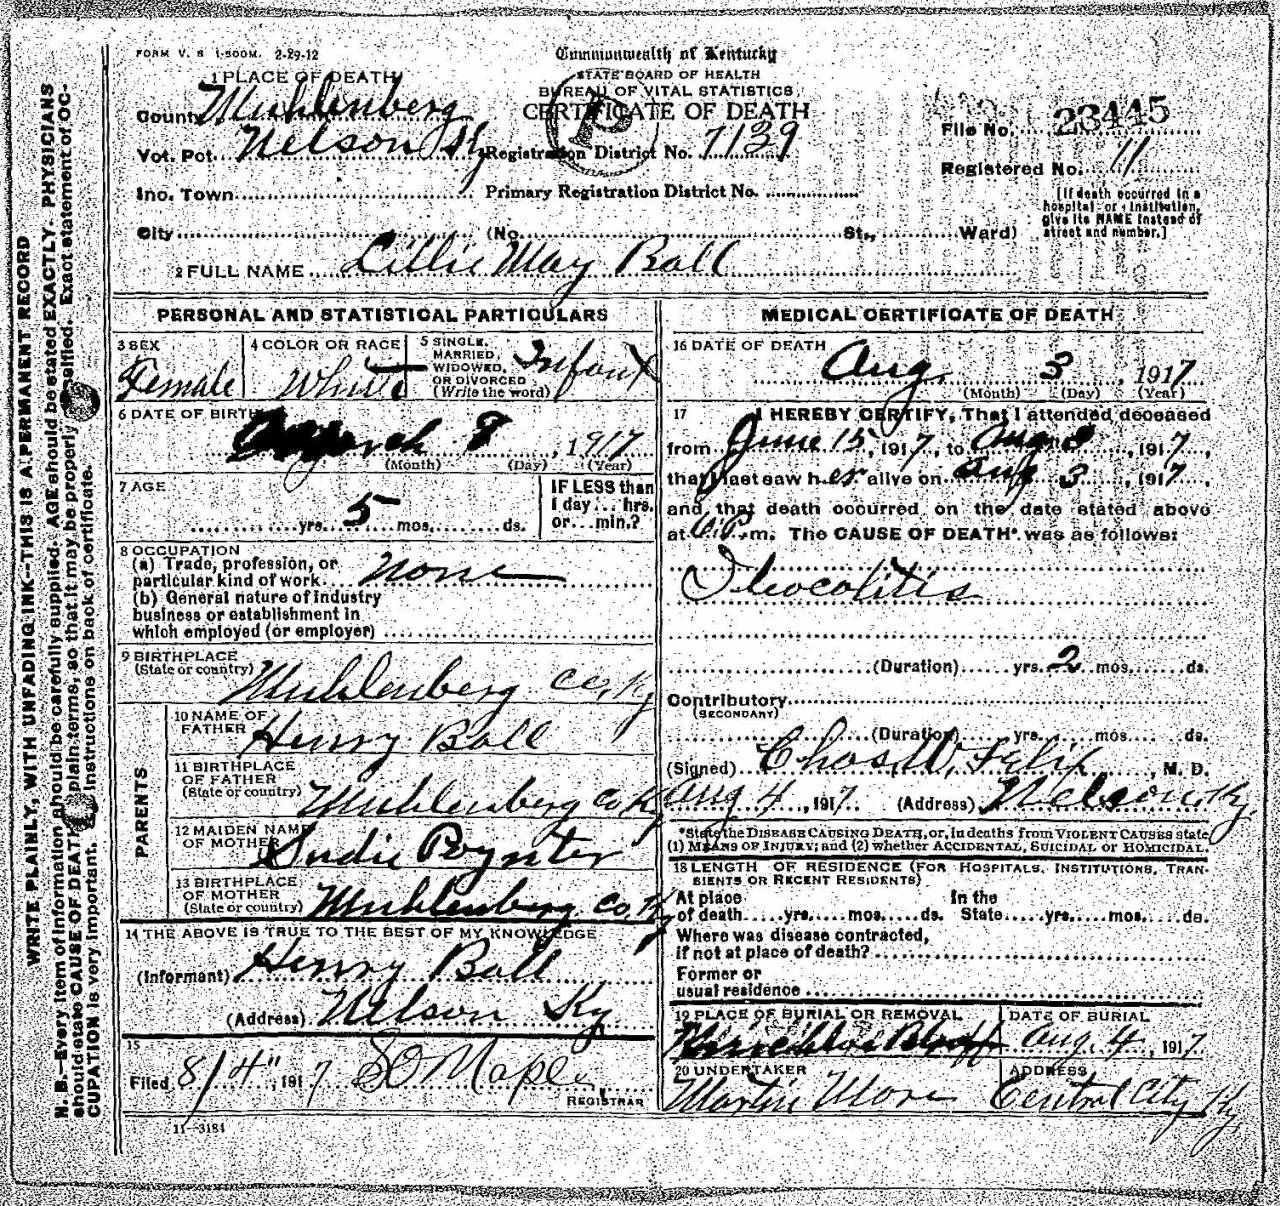 FORM V. S 1-500M. 2-29-12
Commonwealth of Kentucky
STATE BOARD OF HEALTH
BUREAU OF VITAL STATISTICS
CERTIFICATE OF DEATH
1 PLACE OF DEATH
County Muhlenberg
File No. 23445
Vot. Pct. Nelson Ky Registration District No. 7139
Registered No. 11
Inc. Town Primary Registration District No.
[If death occurred in a
hospital or institution,
give its NAME instead of
street and number.]
City (No. St., Ward)
2 FULL NAME Lillie May Ball
PERSONAL AND STATISTICAL PARTICULARS
3 SEX
Female
4 COLOR OR RACE
White
5 SINGLE,
MARRIED,
WIDOWED,
OR DIVORCED
(Write the word)
Infant
6 DATE OF BIRTH
March 8, 1917
(Month) (Day) (Year)
7 AGE
yrs. 5 mos. ds.
IF LESS than
1 day... hrs.
or... min.?
8 OCCUPATION
(a) Trade, profession, or
particular kind of work None
(b) General nature of industry
business or establishment in
which employed (or employer)
9 BIRTHPLACE
(State or country)
Muhlenberg Co, Ky
PARENTS
10 NAME OF
FATHER Henry Ball
11 BIRTHPLACE
OF FATHER
(State or country) Muhlenberg Co Ky
12 MAIDEN NAME
OF MOTHER Sudie Poynter
13 BIRTHPLACE
OF MOTHER
(State or country) Muhlenberg Co, Ky
14 THE ABOVE IS TRUE TO THE BEST OF MY KNOWLEDGE
(Informant) Henry Ball
(Address) Nelson Ky
15
Filed 8/4", 1917 S O Maple
REGISTRAR
11-3184
MEDICAL CERTIFICATE OF DEATH
16 DATE OF DEATH
Aug. 3, 1917
(Month) (Day) (Year)
17 I HEREBY CERTIFY, That I attended deceased
from June 15, 1917, to Aug 3, 1917,
that I last saw her alive on Aug 3, 1917,
and that death occurred on the date stated above
at 6 P. m. The CAUSE OF DEATH* was as follows:
Ileocolitis
(Duration) yrs. 2 mos. ds.
Contributory
(SECONDARY)
(Duration) yrs. mos. ds.
(Signed) Chas. W. Felix, M. D.
Aug 4, 1917. (Address) Nelson, Ky.
*State the DISEASE CAUSING DEATH, or, in deaths from VIOLENT CAUSES state
(1) MEANS OF INJURY; and (2) whether ACCIDENTAL, SUICIDAL OR HOMICIDAL.
18 LENGTH OF RESIDENCE (FOR HOSPITALS, INSTITUTIONS, TRAN-
SIENTS OR RECENT RESIDENTS)
At place In the
of death yrs. mos. ds. State yrs. mos. ds.
Where was disease contracted,
if not at place of death?
Former or
usual residence
19 PLACE OF BURIAL OR REMOVAL
DATE OF BURIAL
Aug. 4 1917
20 UNDERTAKER
Martin Moore
ADDRESS
Central City Ky
WRITE PLAINLY, WITH UNFADING INK—THIS IS A PERMANENT RECORD
N. B.—Every item of information should be carefully supplied. AGE should be stated EXACTLY. PHYSICIANS
should state CAUSE OF DEATH in plain terms, so that it may be properly classified. Exact statement of OC-
CUPATION is very important. See instructions on back of certificate.